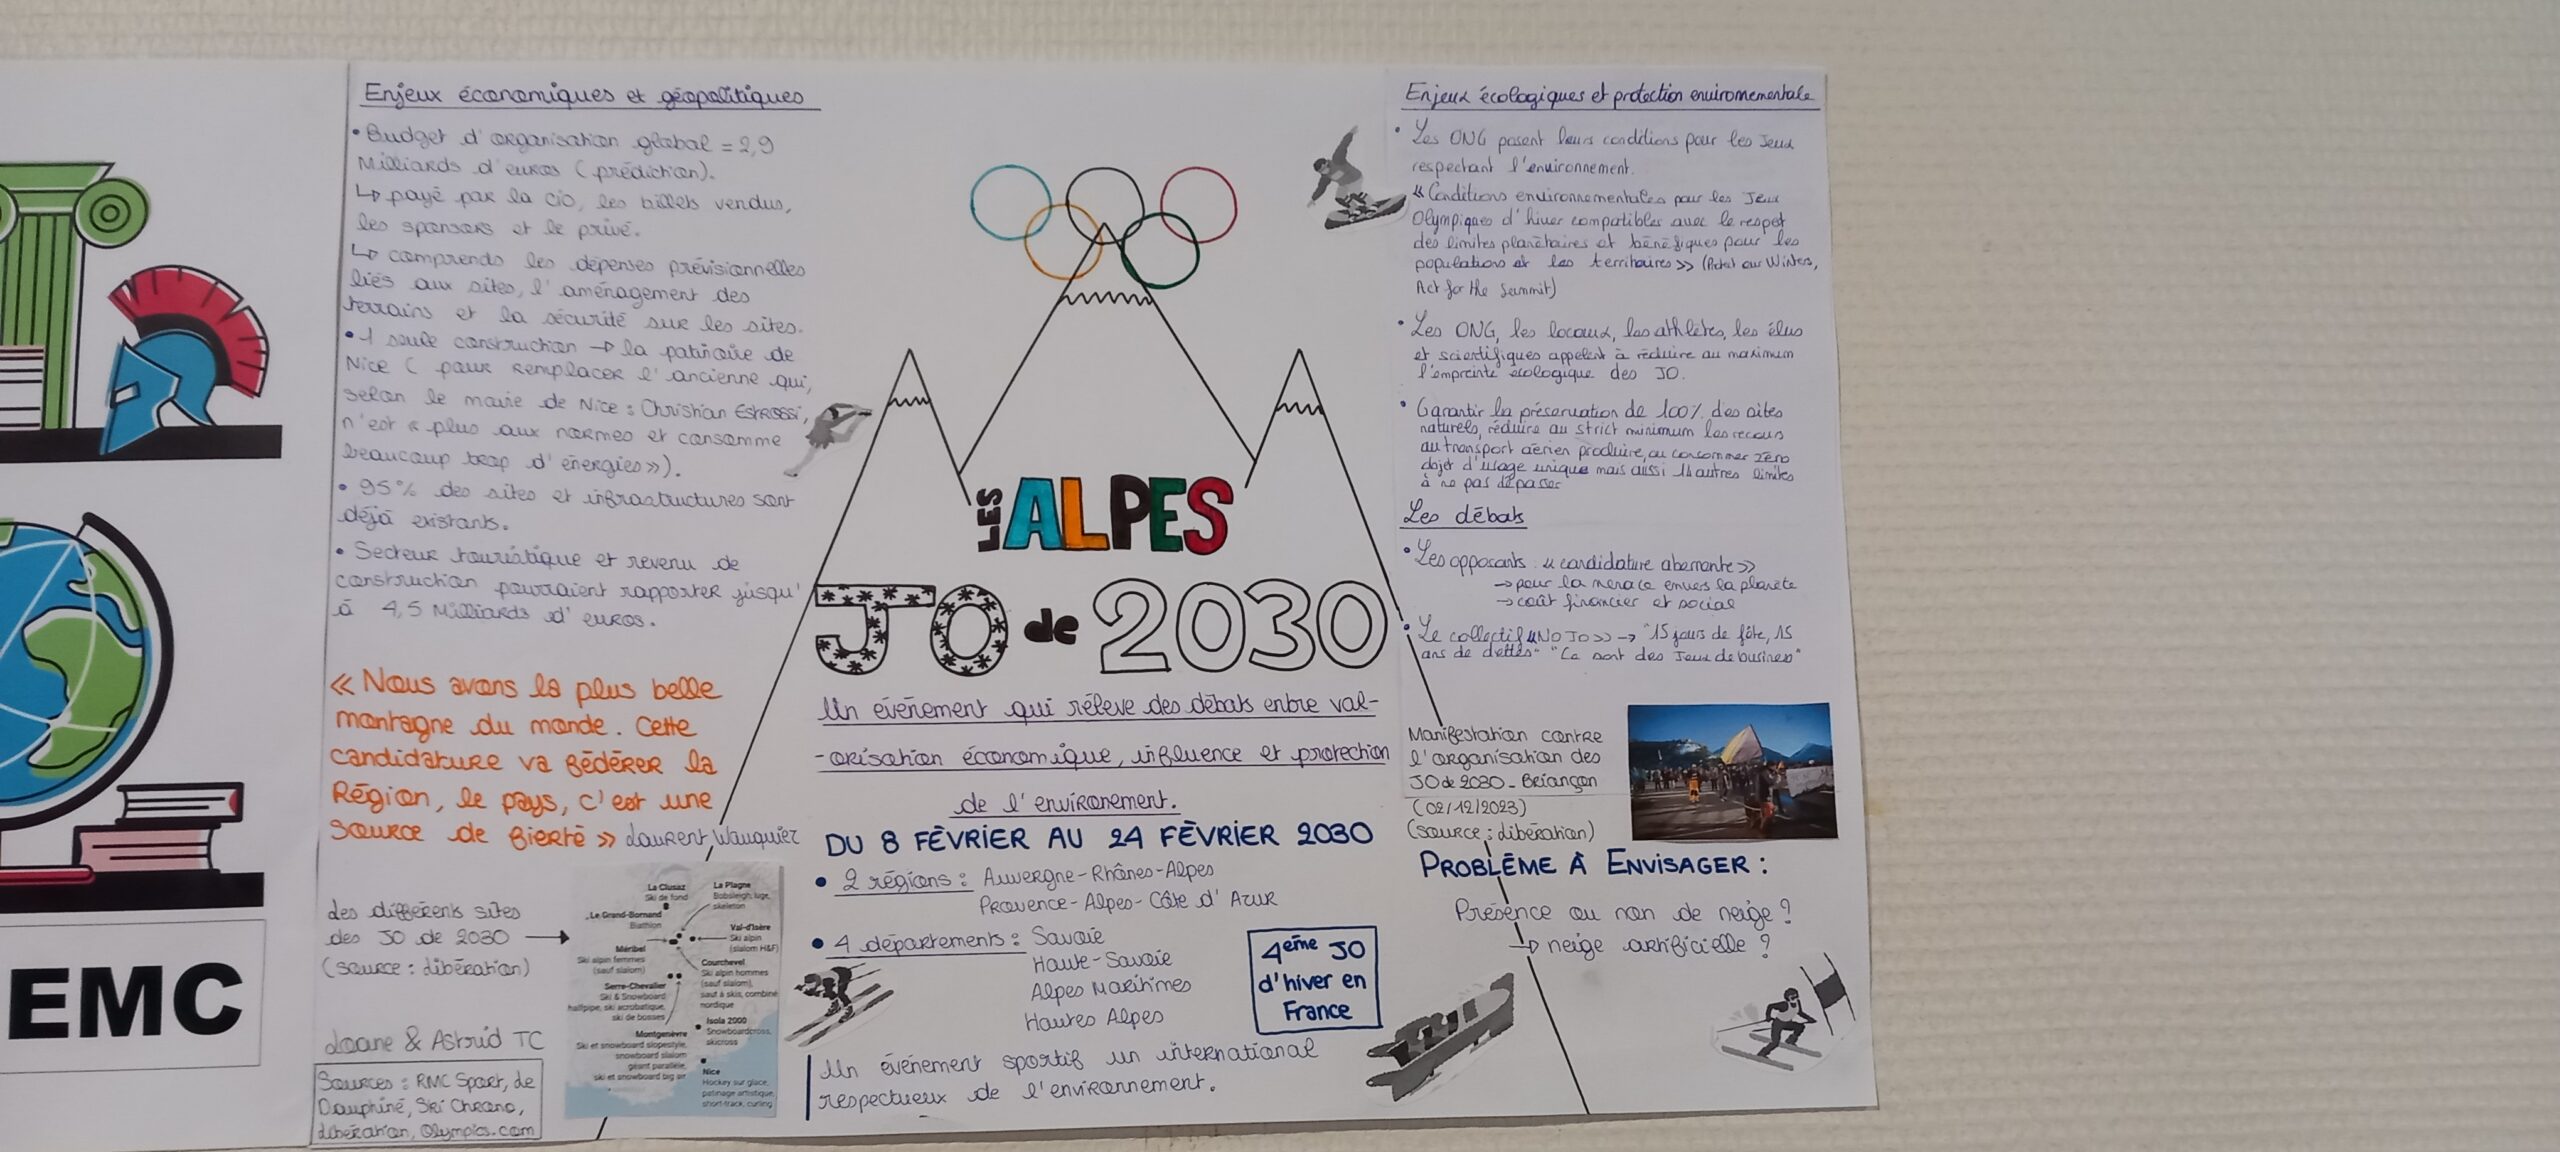 Enjeux économiques et géopolitiques
• Budget d'organisation global = 2,9
Milliards d'euros (prédiction).
↳ payé par la CIO, les billets vendus,
les sponsors et le privé.
↳ comprends les dépenses prévisionnelles
liés aux sites, l'aménagement des
terrains et la sécurité sur les sites.
• 1 seule construction → la patinoire de
Nice (pour remplacer l'ancienne qui,
selon le maire de Nice : Christian Estrossi,
n'est « plus aux normes et consomme
beaucoup trop d'énergies »).
• 95% des sites et infrastructures sont
déjà existants.
• Secteur touristique et revenu de
construction pourraient rapporter jusqu'
à 4,5 Milliards d'euros.
« Nous avons la plus belle
montagne du monde. Cette
candidature va fédérer la
Région, le pays, c'est une
source de fierté » Laurent Wauquier
des différents sites
des JO de 2030 →
(source : libération)
Loane & Astrid TC
Sources : RMC Sport, de
Dauphiné, Ski Chrono,
libération, Olympics.com
EMC
La Clusaz
Ski de fond
La Plagne
Bobsleigh, luge,
skeleton
Le Grand-Bornand
Biathlon
Val-d'Isère
Ski alpin
(slalom H&F)
Méribel
Ski alpin femmes
(sauf slalom)
Courchevel
Ski alpin hommes
(sauf slalom),
saut à skis, combiné
nordique
Serre-Chevalier
Ski & Snowboard
halfpipe, ski acrobatique,
ski de bosses
Isola 2000
Snowboardcross,
skicross
Montgenèvre
Ski et snowboard slopestyle,
snowboard slalom
géant parallèle,
ski et snowboard big air
Nice
Hockey sur glace,
patinage artistique,
short-track, curling
LES ALPES
JO de 2030
Un événement qui relève des débats entre val-
-orisation économique, influence et protection
de l'environement.
DU 8 FÉVRIER AU 24 FÉVRIER 2030
• 2 régions : Auvergne-Rhônes-Alpes
Provence-Alpes-Côte d'Azur
• 4 départements : Savoie
Haute-Savoie
Alpes Maritimes
Hautes Alpes
4ème JO
d'hiver en
France
Un événement sportif un international
respectueux de l'environnement.
Enjeux écologiques et protection environnementale
• Les ONG posent leurs conditions pour les Jeux
respectant l'environnement.
« Conditions environnementales pour les Jeux
Olympiques d'hiver compatibles avec le respet
des limites planétaires et bénéfiques pour les
populations et les territoires » (Protect our Winters,
Act for the Summit)
• Les ONG, les locaux, les athlètes, les élus
et scientifiques appelent à réduire au maximum
l'empreinte écologique des JO.
• Garantir la préservation de 100% des sites
naturels, réduire au strict minimum les recours
au transport aérien produire, ou consommer zéro
objet d'usage unique mais aussi 11 autres limites
à ne pas dépasser
Les débats
• Les opposants : « candidature aberrante »
→ pour la menace envers la planète
→ coût financier et social
• Le collectif « NO JO » → "15 jours de fête, 15
ans de dettes" "Ce sont des Jeux de business"
Manifestation contre
l'organisation des
JO de 2030 - Briançon
(02/12/2023)
(source : libération)
PROBLÈME À ENVISAGER :
Présence ou non de neige ?
↳ neige artificielle ?